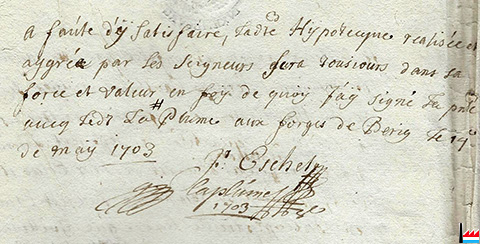 a faute d'ÿ satisfaire, ladte Hypotecque realisée et
aggrée par les Seigneurs sera tousiours dans sa
force et valeur en foy de quoy J'aÿ signé la pnte
avecq ledt La Plume aux forges de Berg le 19e
de maÿ 1703
Eschet
laplume
1703